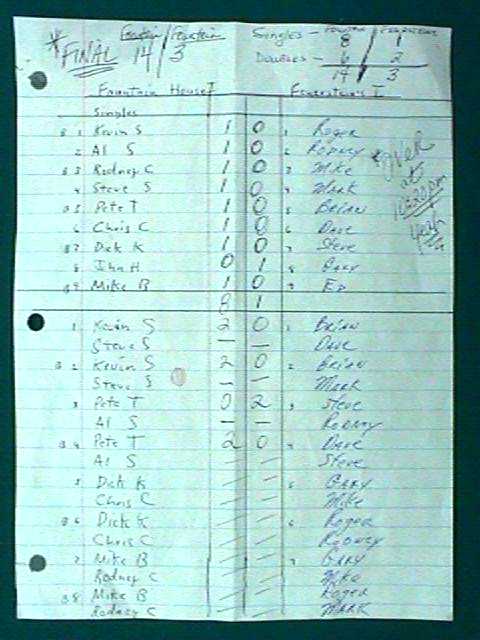 * FINAL Fountain / Feurstein Singles - Fountain / Feuerstein
14 / 3 8 / 1
Doubles - 6 / 2
14 / 3
Fountain House I Feuerstein's I
Singles
B 1 Kevin S 1 0 1 Roger
2 Al S 1 0 2 Rodney
B 3 Rodney C 1 0 3 Mike
4 Steve S 1 0 4 Mark
B 5 Pete T 1 0 5 Brian
6 Chris C 1 0 6 Dave
B 7 Dick K 1 0 7 Steve
8 John H 0 1 8 Gary
B 9 Mike B 1 0 9 Ed
8 1
* over
at
10:20pm
yeah
1 Kevin S 2 0 1 Brian
Steve S — — Dave
B 2 Kevin S 2 0 2 Brian
Steve S — — Mark
3 Pete T 0 2 3 Steve
Al S — — Rodney
B 4 Pete T 2 0 4 Dave
Al S Steve
5 Dick K 5 Gary
Chris C Mike
B 6 Dick K 6 Roger
Chris C Rodney
7 Mike B 7 Gary
Rodney C Mike
B 8 Mike B Roger
Rodney C Mark